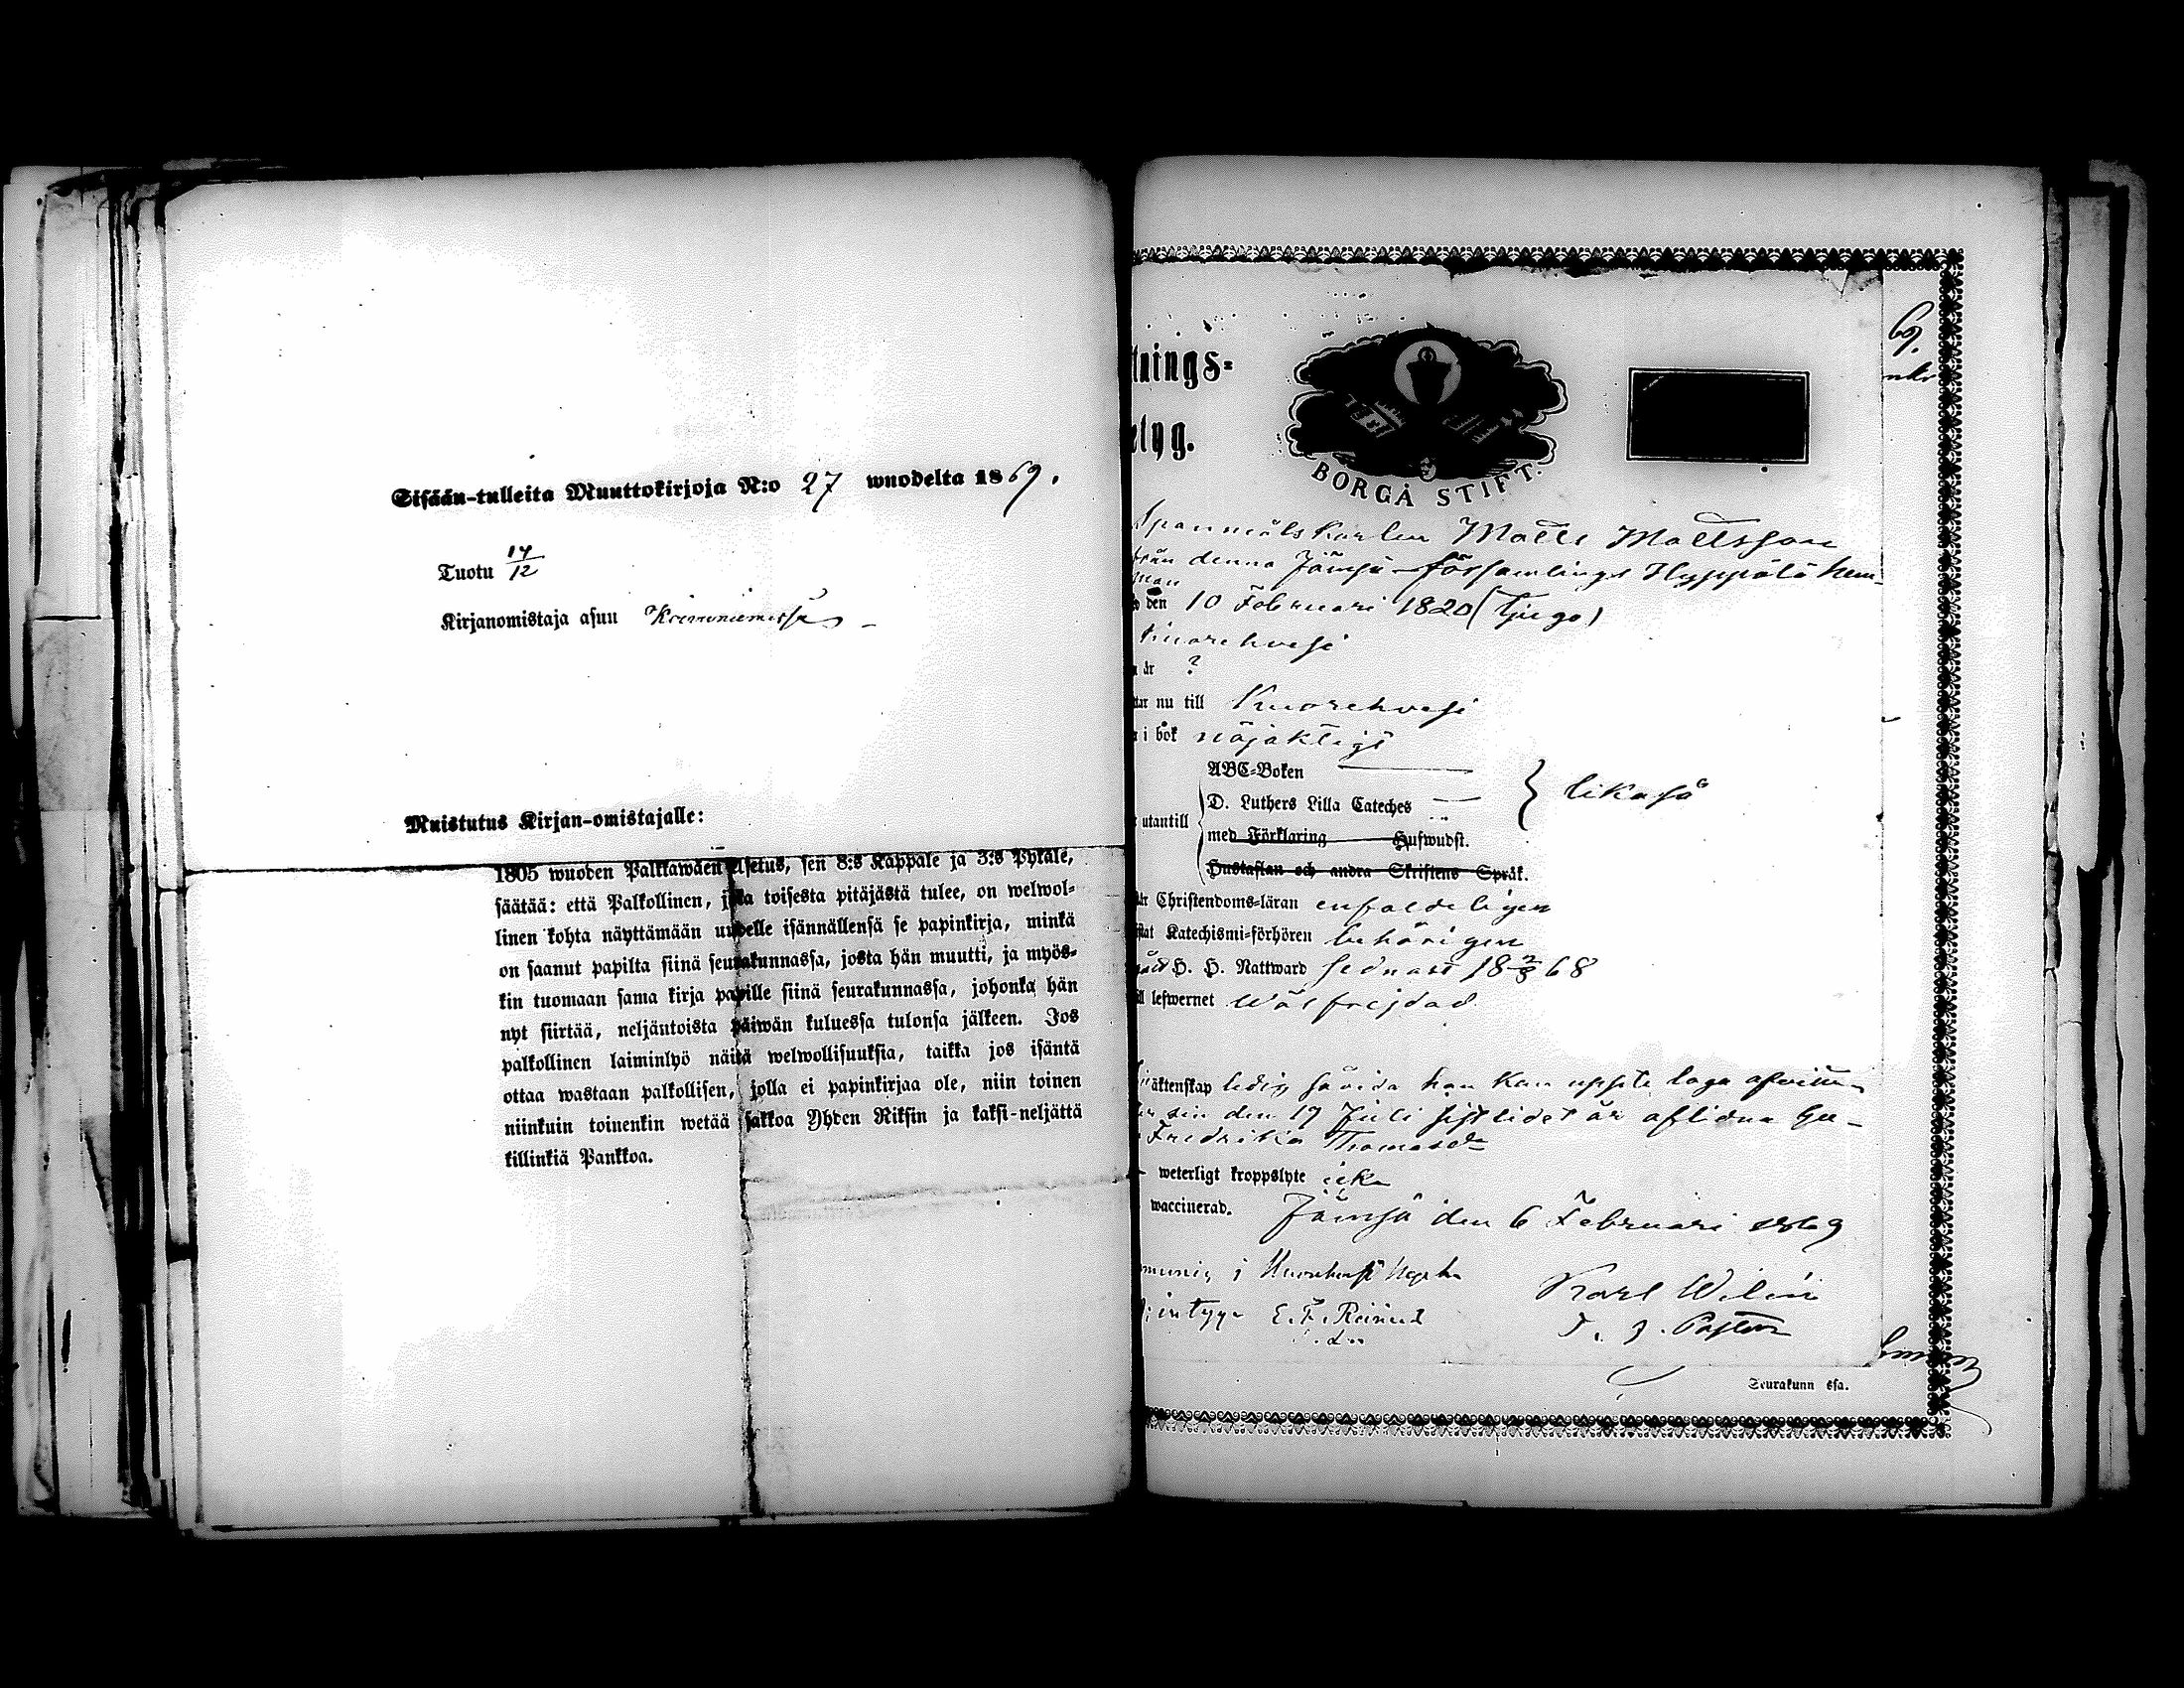 Sisään-tulleita Muuttokirjoja N:o 27 wuodelta 1869.
Tuotu 14/12
Kirjanomistaja asuu
Muistutus Kirjan-omistajalle:
1805 wuoden Palkkawäen Asetus, sen 8:s Kappale ja 3:s Pykäle,
säätää: että Palkollinen, joka toisesta pitäjästä tulee, on welwol-
linen kohta näyttämään uudelle isännällensä se papinkirja, minkä
on saanut papilta siinä seurakunnassa, josta hän muutti, ja myös-
kin tuomaan sama kirja papille siinä seurakunnassa, johonka hän
nyt siirtää, neljäntoista päiwän kuluessa tulonsa jälkeen. Jos
palkollinen laiminlyö näitä welwollisuuksia, taikka jos isäntä
ottaa wastaan palkollisen, jolla ei papinkirjaa ole, niin toinen
niinkuin toinenkin wetää sakkoa Yhden Riksin ja kaksi-neljättä
killinkiä Pankkoa.
tnings-
etyg.
BORGÅ STIFT.
69.
Spannmålskarlen Matts Mattsson
från denna Jämsä församlings Hyppälä hem-
man
den 10 Februari 1820 (tjugo)
Kuorehvesi
är ?
tar nu till Kuorehvesi
i bok nöjaktigt
ABC-Boken
D. Luthers Lilla Cateches } likaså
utantill
med Förklaring Hufwudst.
Hustaflan och andra Skriftens Språk.
Christendoms-läran enfaldeligen
Katechismi-förhören behörigen
H. H. Nattward sednast 18 2/8 68
lefwernet wälfrejdad
äktenskap ledig såvida han kan uppte laga
sin den 19 Juli sistlidet år aflidna
Fredrika Thomasdr
weterligt kroppslyte icke
waccinerad.
Jämsä den 6 Februari 1869
i Kuorehvesi
intygar E. F.
Karl Wilén
T. f. Pastor
Seurakunnassa.